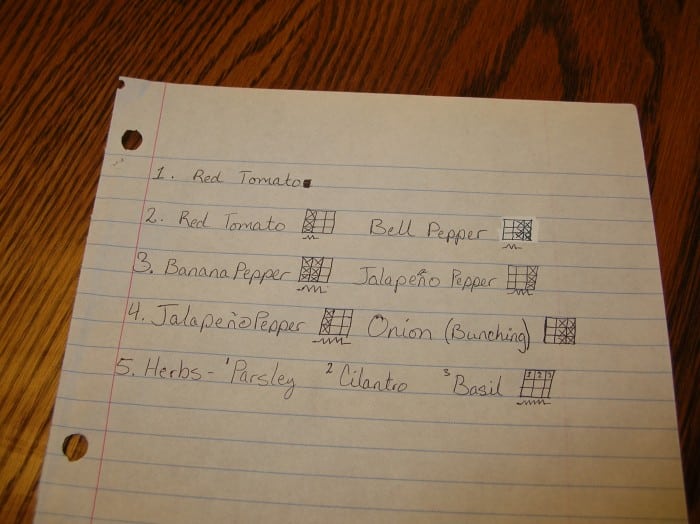 1. Red Tomato
2. Red Tomato Bell Pepper
3. Banana Pepper Jalapeño Pepper
4. Jalapeño Pepper Onion (Bunching)
5. Herbs - ¹Parsley ²Cilantro ³Basil 1 2 3